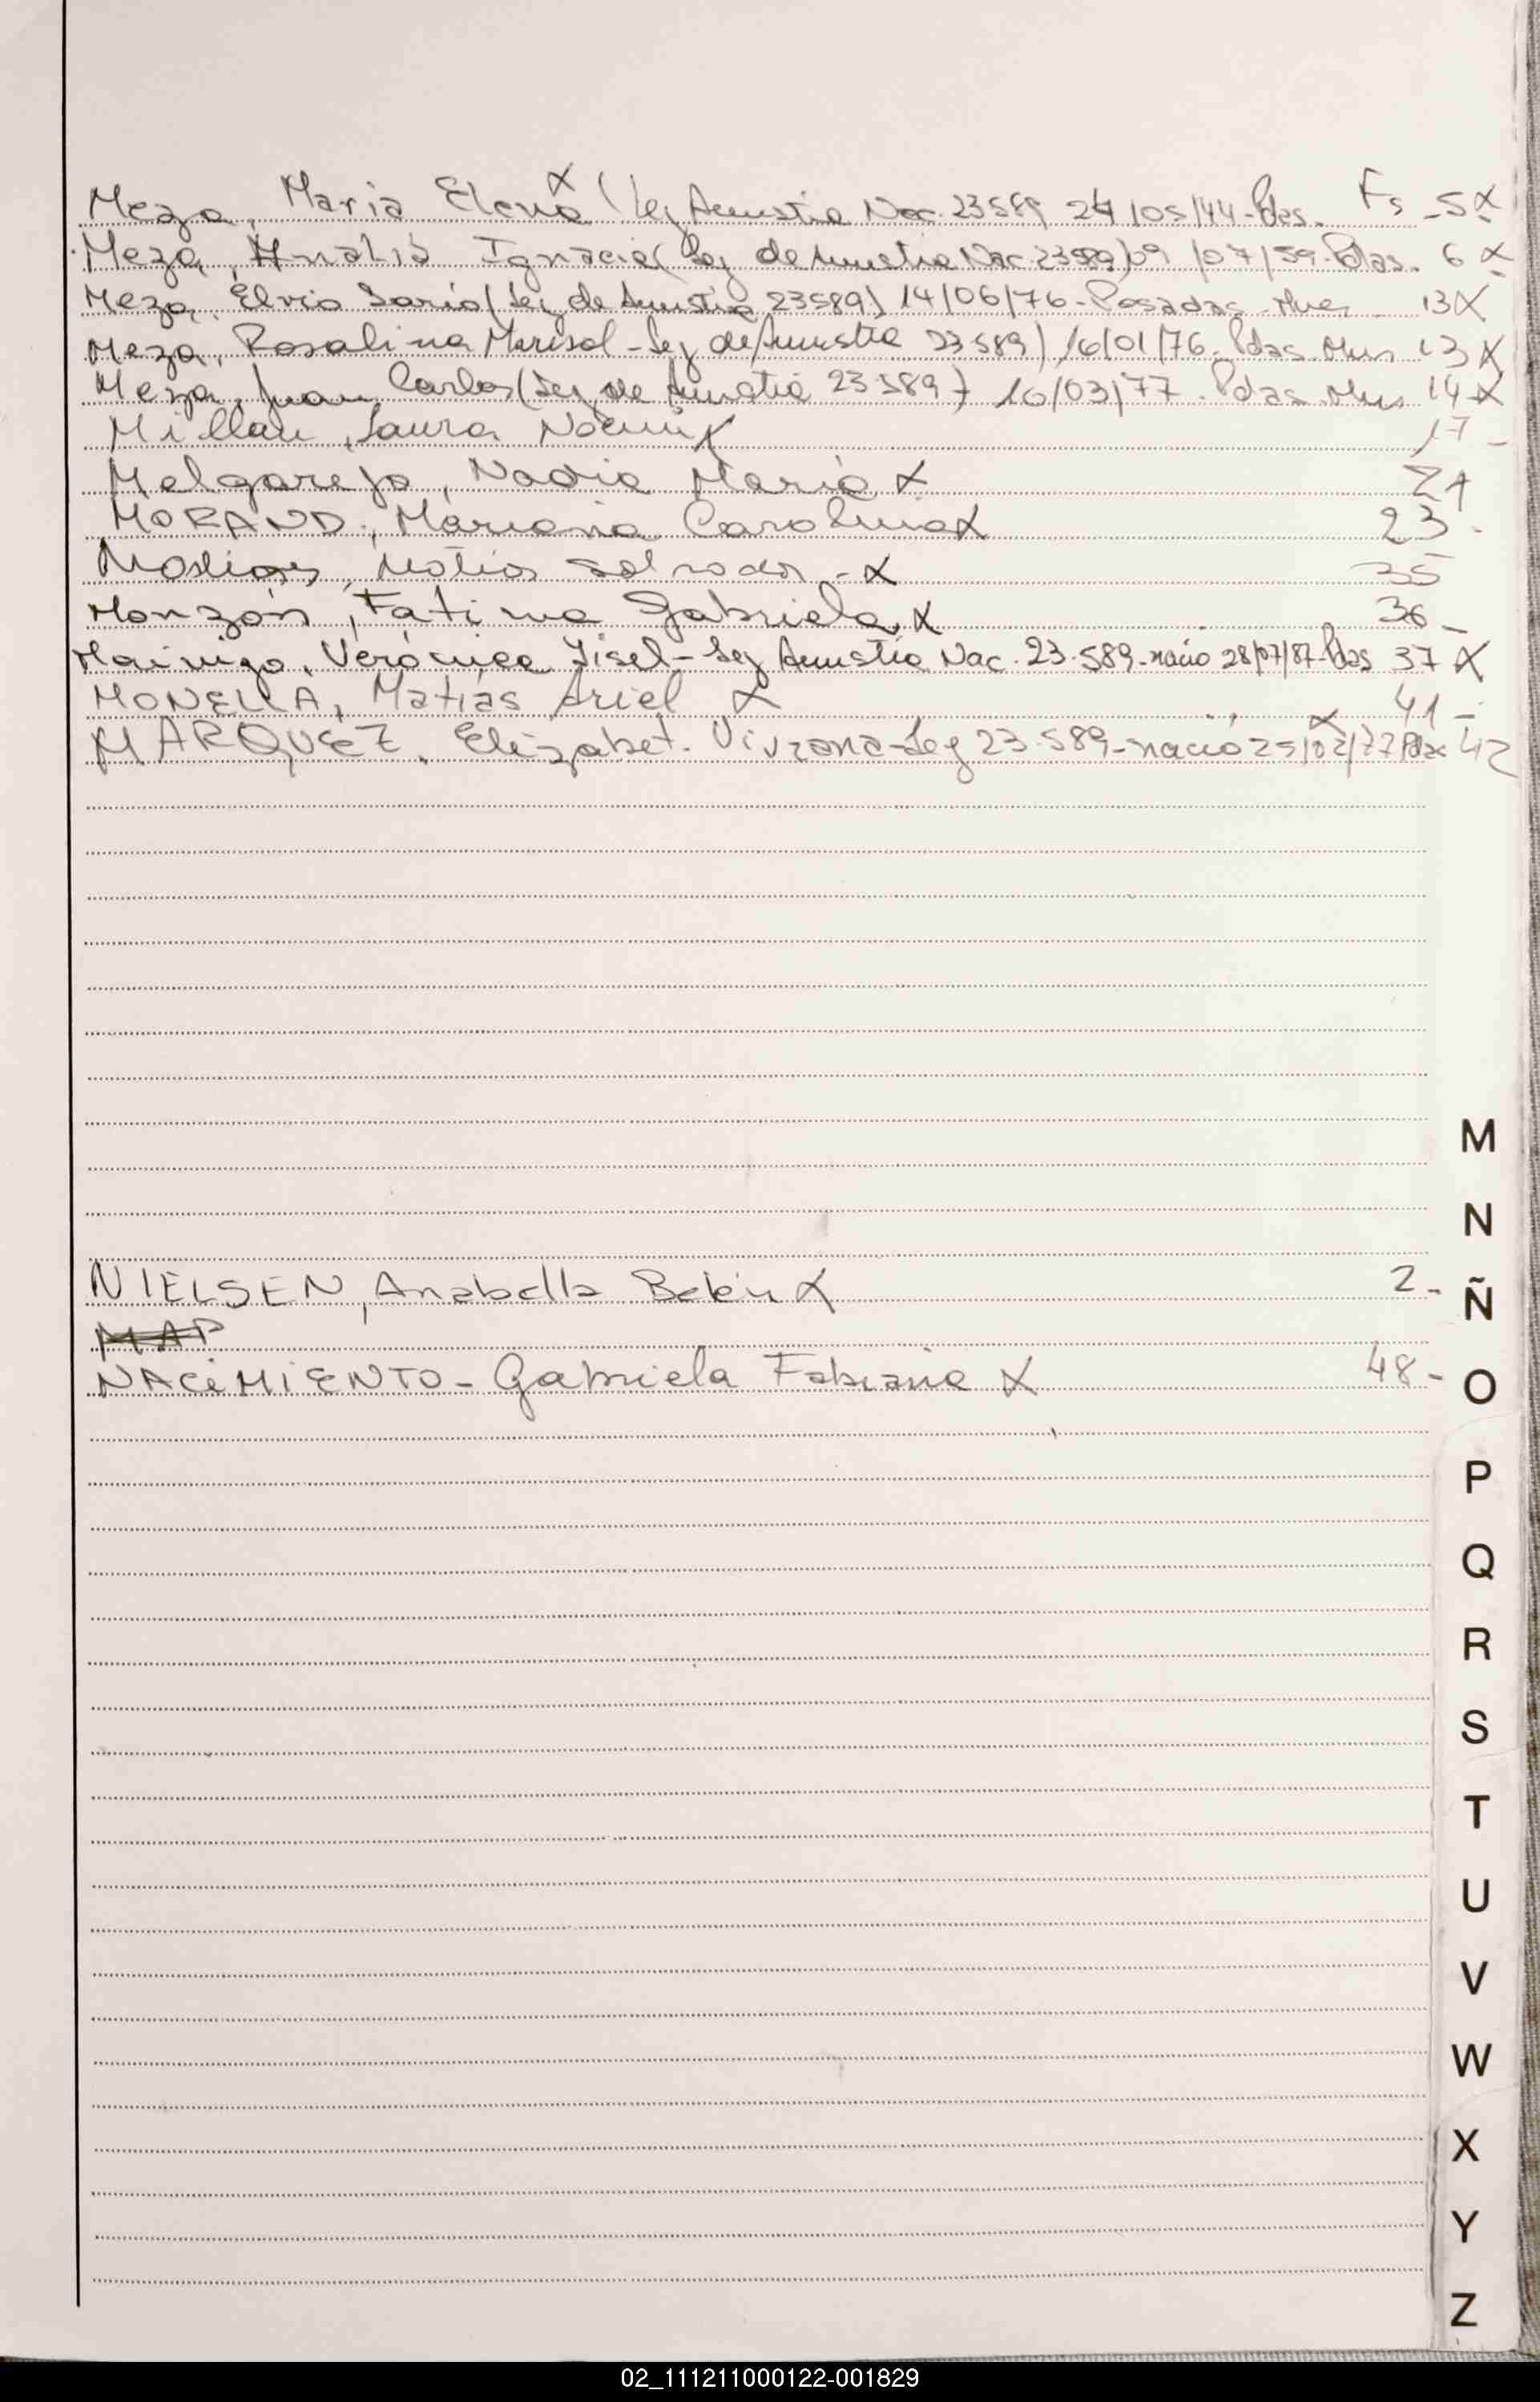 Meza, Maria Elena X (Ley Amnistia Nac. 23589 24/05/44-Pdas. Fs -5X
Meza, Analia Ignacia (Ley de Amnistia Nac. 23589) 09/07/59-Pdas. 6 X
Meza, Elvio Dario (Ley de Amnistia 23589) 14/06/76-Posadas-Mnes 13X
Meza, Rosalina Marisol-Ley de Amnistia 23589) 16/01/76-Pdas. Mns 13 X
Meza, Juan Carlos (Ley de Amnistia 23589) 10/03/77-Pdas. Mns 14 X
Millan, Laura Noemi X 17-
Melgarejo, Nadia Maria X 21
MORAND, Mariana Carolina X 23-
Matias Salvador - X 35
Monzón, Fatima Gabriela X 36-
Verónica Jisel-Ley Amnistia Nac. 23.589-nacio 28/07/87-Pdas 37 X
MONELLA, Matias Ariel X 41-
MARQUEZ, Elizabet. Viviana-Ley 23.589-nació 25/02/77 Pdas X 42
NIELSEN, Anabella Belén X 2-
MAP
NACIMIENTO-Gabriela Fabiana X 48-
M
N
Ñ
O
P
Q
R
S
T
U
V
W
X
Y
Z
02_111211000122-001829